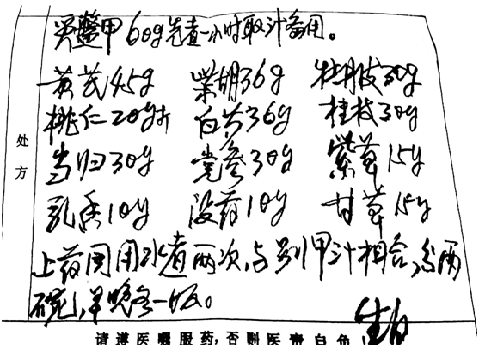 炙鳖甲60g先煮一小时取汁备用。
黄芪45g 柴胡36g 牡丹皮30g
桃仁20g 白芍36g 桂枝30g
当归30g 党参30g 紫草15g
乳香10g 没药10g 甘草15g
上药同用水煮两次,与别甲汁相合,分两
碗,早晚各一服。
处方
请遵医嘱服药,否则医责自负